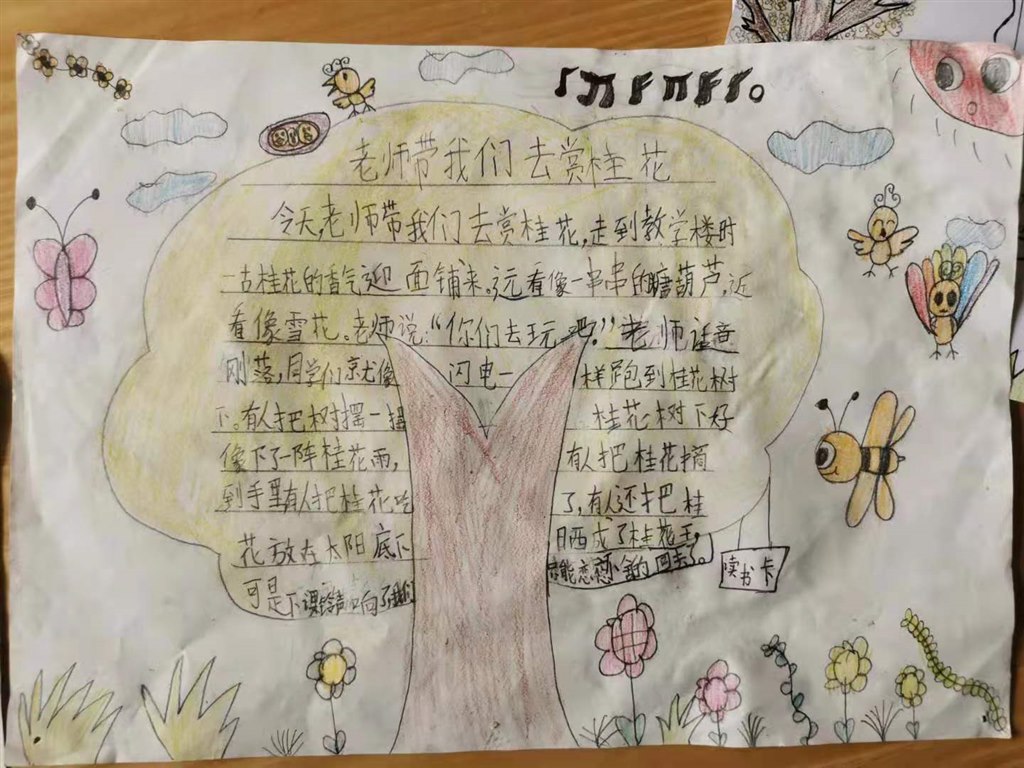 老师带我们去赏桂花
今天老师带我们去赏桂花,走到教学楼时
一古桂花的香气迎面铺来。远看像一串串的糖葫芦,近
看像雪花。老师说:“你们去玩吧。”老师话音
刚落,同学们就像闪电一样跑到桂花树
下。有人把树摆一摆桂花树下好
像下了一阵桂花雨,有人把桂花摘
到手里有人把桂花吃了,有人还把桂
花放在太阳底下晒成了桂花王,
可是下课铃声响了我们能恋恋不舍的回去了。
读书卡